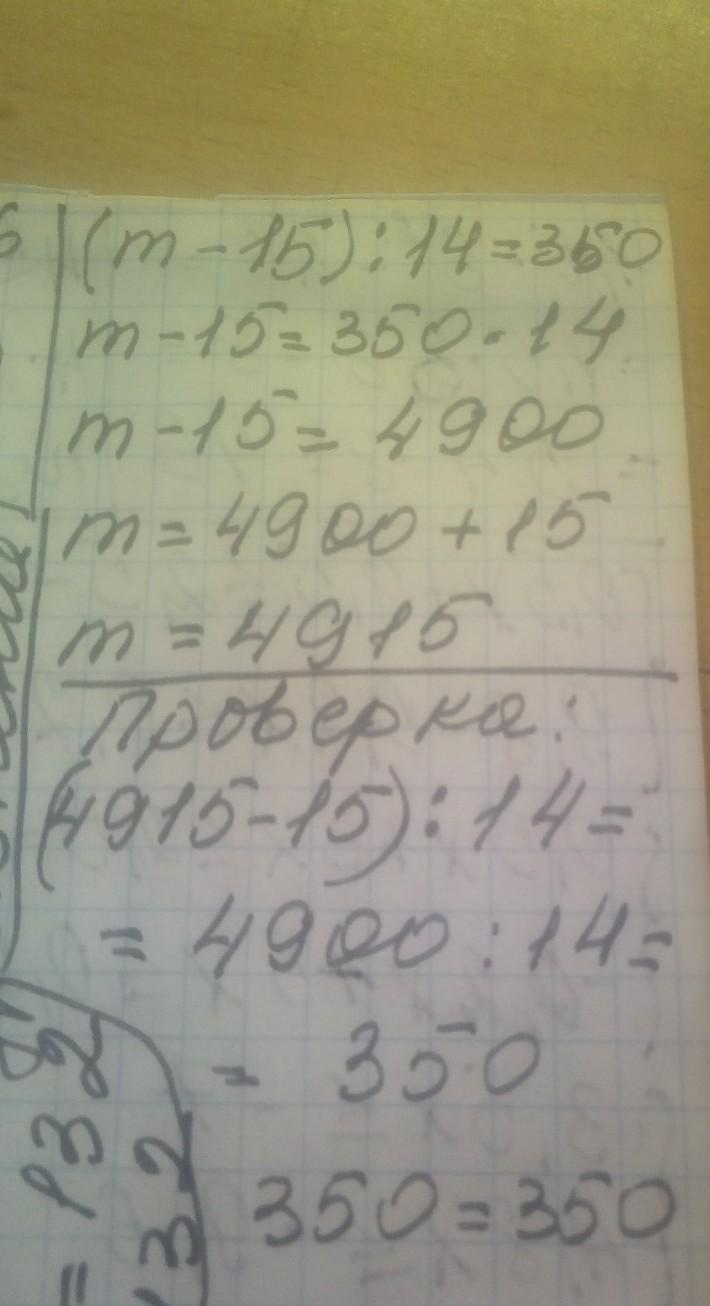 (m - 15) : 14 = 350
m - 15 = 350 · 14
m - 15 = 4900
m = 4900 + 15
m = 4915
Проверка:
(4915 - 15) : 14 =
= 4900 : 14 =
= 350
350 = 350
= 132
132